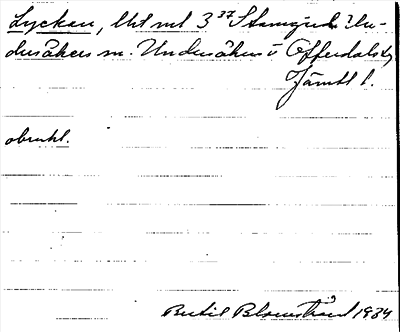 Lyckan, lht mt 3³⁷ Stamgärde Un-
dersåkers sn. Undersåkers o Offerdals tg
Jämtl l.
obrukl.
Bertil Blomstrand 1934